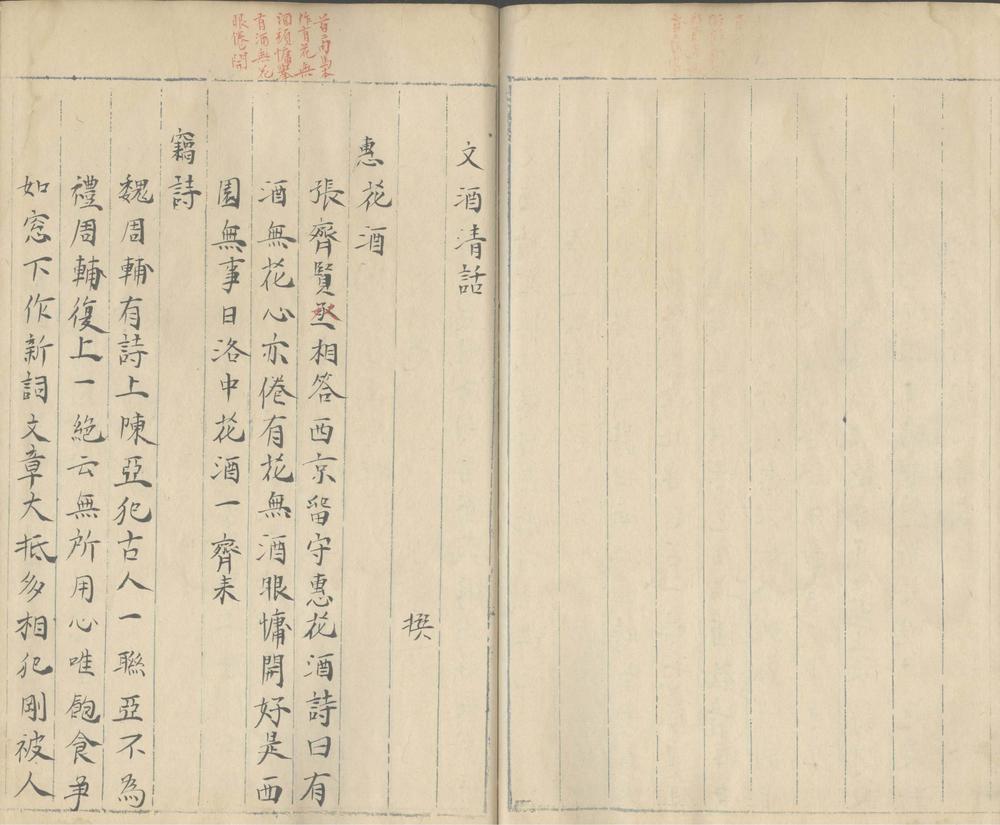 文酒清話
撰
惠花酒
張齊賢丞相答西京留守惠花酒詩曰有
酒無花心亦倦有花無酒眼慵開好是西
園無事日洛中花酒一齊来
竊詩
魏周輔有詩上陳亞犯古人一聯亞不為
禮周輔復上一絕云無所用心唯飽食爭
如窓下作新詞文章大抵多相犯剛被人
首兩句集
作有花無
酒頭慵舉
有酒無花
眼倦開